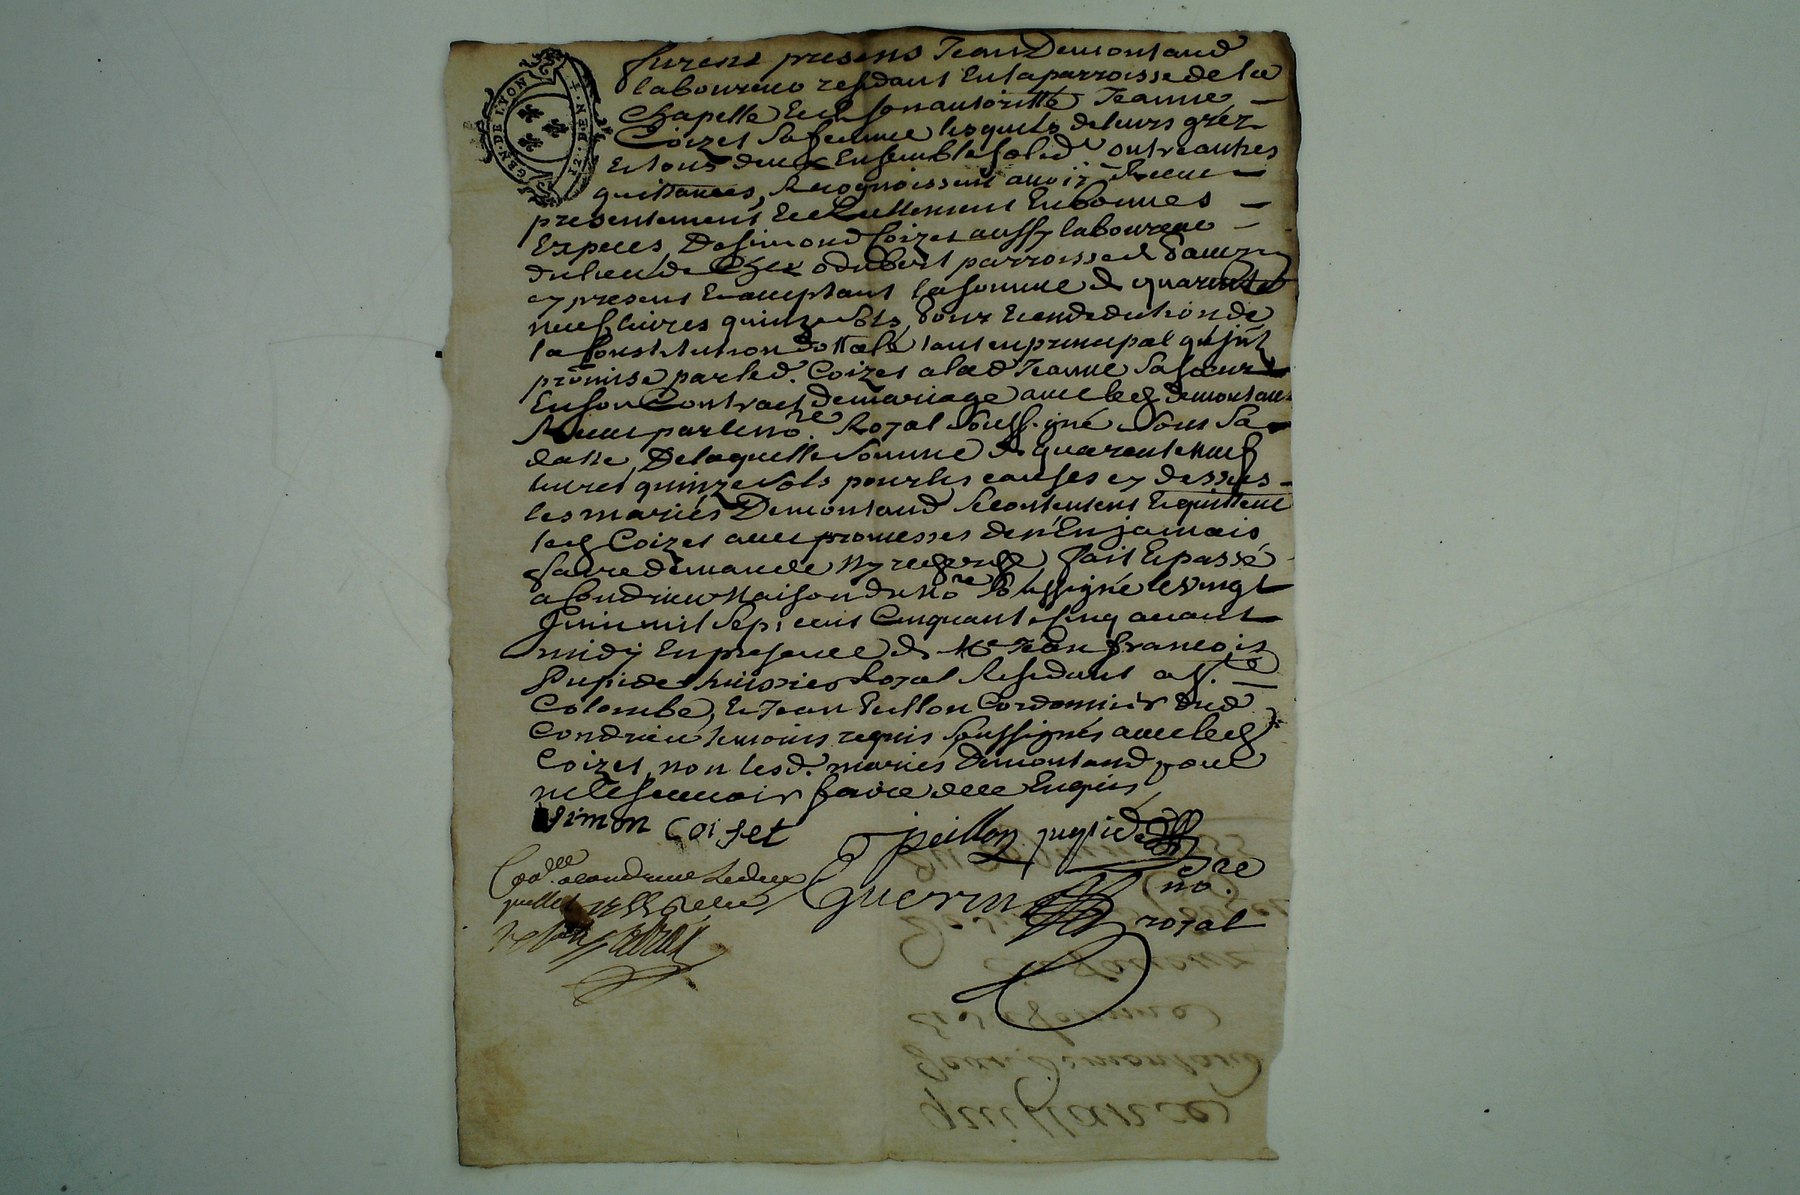 GEN. DE LYON
furent presens Jean Demontand
laboureur residant en la parroisse de la
Chapelle et de son autoritté Jeanne
Coizet sa femme lesquels de leurs grez
et tous deux ensemble solid. outre autres
quittances, recognoissent avoir receu
presentement et reellement en bonnes
especes, de simond Coizet aussy laboureur
du lieu de chez odubert parroisse de
cy present et acceptant la somme de quarente
neuf livres quinze sols, pour et en deduction de
la constitution dottale tant en principal qu'
promise par led. Coizet a lad. Jeanne sa soeur
en son contract de mariage avec led. demontand
Receu par le no.re Royal soussigné sous sa
datte, De laquelle somme de quarente neuf
livres quinze sols pour les causes cy dessus
les mariés Demontand se contentent et quittent
led. Coizet avec promesses de n'en jamais
faire demande ny recherche, fait et passé
a Condrieu maison du no.re soussigné le vingt
Juin mil sept cens cinquante cinq avant
midy en presence de Me Jean françois
Pupide huissier Royal residant a S.te
Colombe, et Jean Peillon Cordonnier dud.
Condrieu temoins requis soussignés avec led.
Coizet, non lesd. mariés Demontand pour
ne le scavoir faire de ce enquis
simon Coiset
peillon pupide
Guerrin no.re
royal
quittance
Jean Demontand
et sa femme